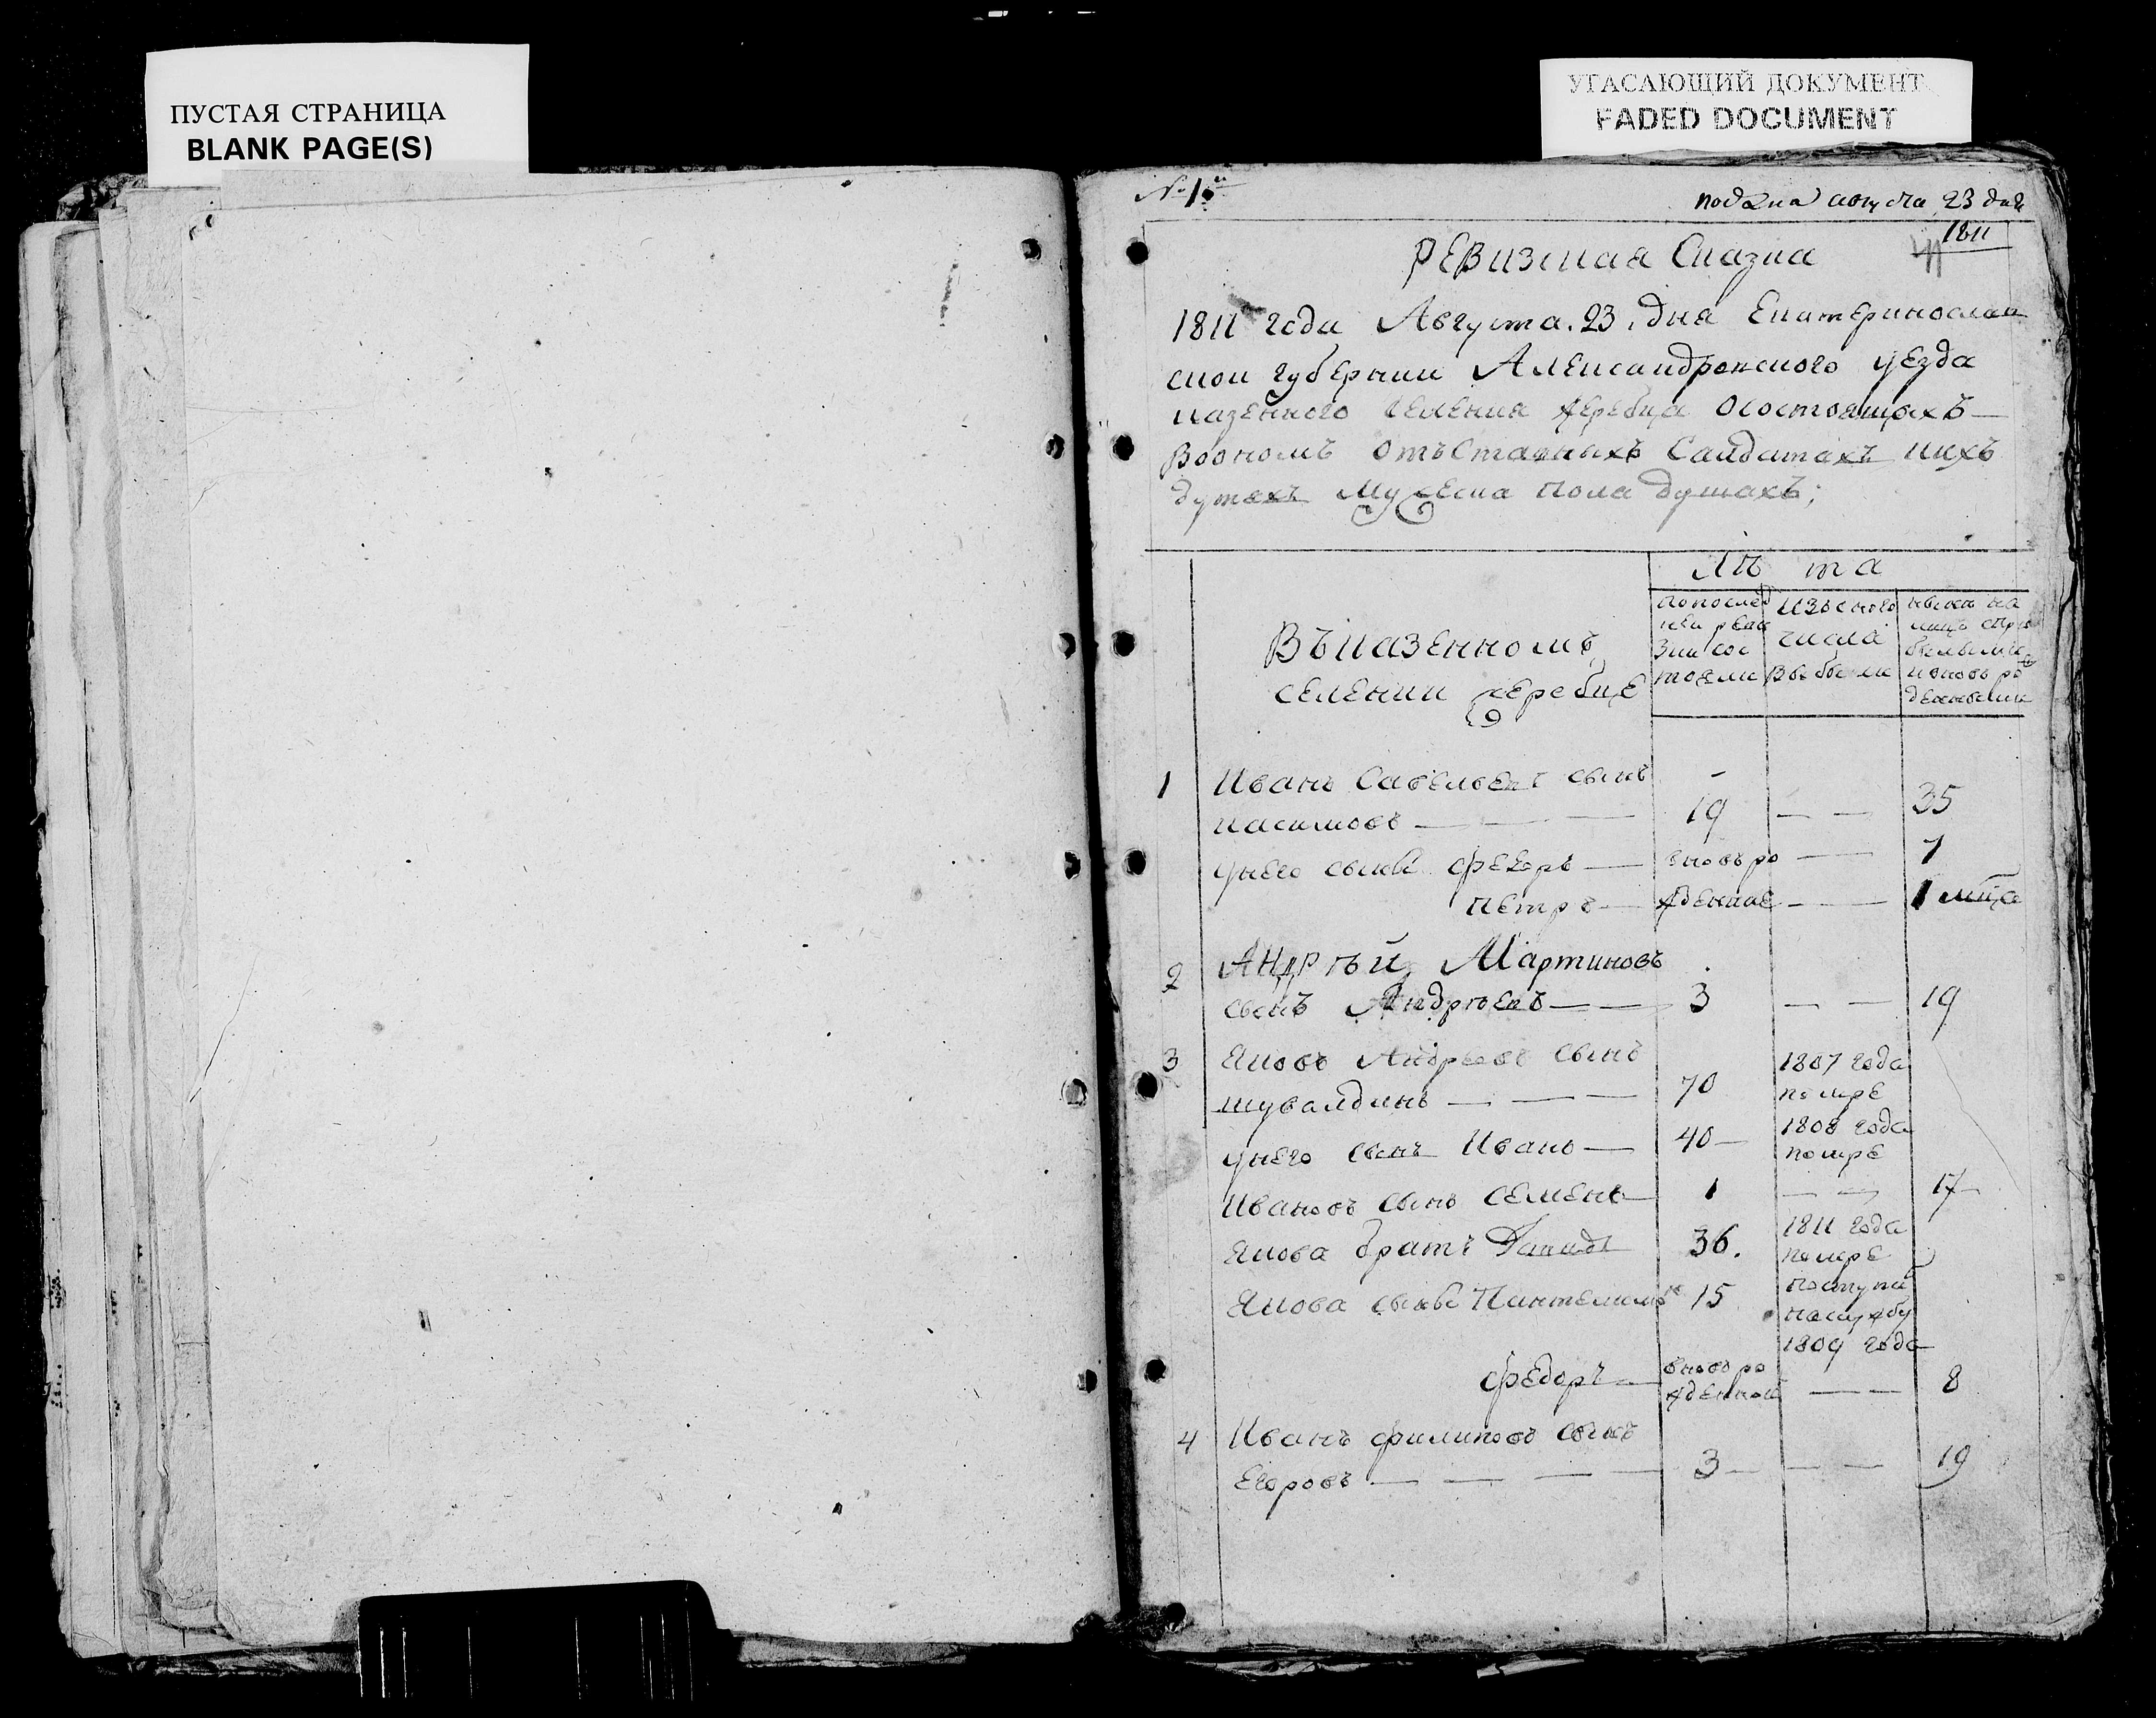 ПУСТАЯ СТРАНИЦА
BLANK PAGE(S)
УГАСАЮЩИЙ ДОКУМЕНТ
FADED DOCUMENT
№ 1й
подана августа 23 дня
1811
41
Ревизская Сказка
1811 года Августа. 23. дня Екатеринослав
скои губернии Александровского уезда
казенного селения жеребца осостоящихъ
Воономъ отъставныхъ Салдатахъ иихъ
дутехъ мужеска пола душахъ;
Лѣ та
Въказенномъ
селении жеребце
попослед
неи реви
зии сос
тояли
Изъоного
числа
Выбыли
ныне на
лицо спри
былыми
ивновь ро
жденными
1 Иванъ Савельевъ сынъ
Касимовъ — — — 19 — — 35
унего сынѣ федоръ — вновь ро — 7
Петръ — жденные — — 1 мца
2 Андрѣй Мартиновъ
сынъ Андрѣевъ — — 3 — — 19
3 Яковъ Андреевъ сынъ
шувалдинъ — — — 70 1807 года
помре
унего сынъ Иванъ — 40 — 1808 года
помре
Ивановъ сынъ Семенъ — 1 — — 17 —
Якова братъ 36. 1811 года
помре
Якова сынѣ 15 поступи
наслужбу
1809 года
федоръ — вновь ро
жденной — — 8
4 Иванъ филиповъ сынъ
Егоровъ — — — — 3 — — — 19